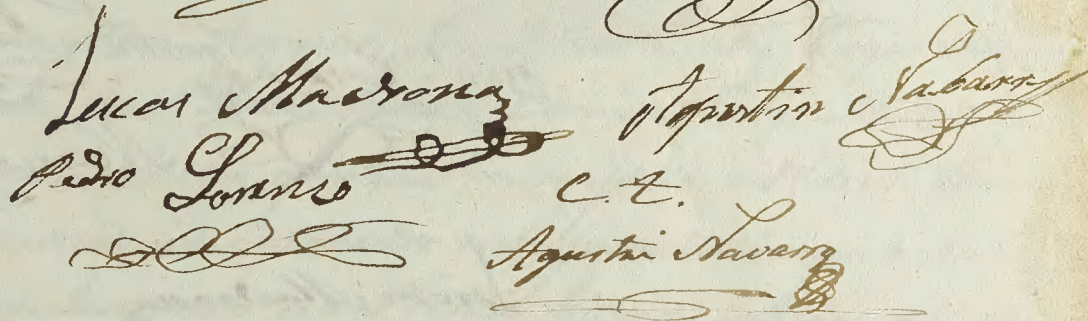 Lucas Madrona
Agustin Nabarro
Pedro Lorenzo
C. t.
Agustin Navarro